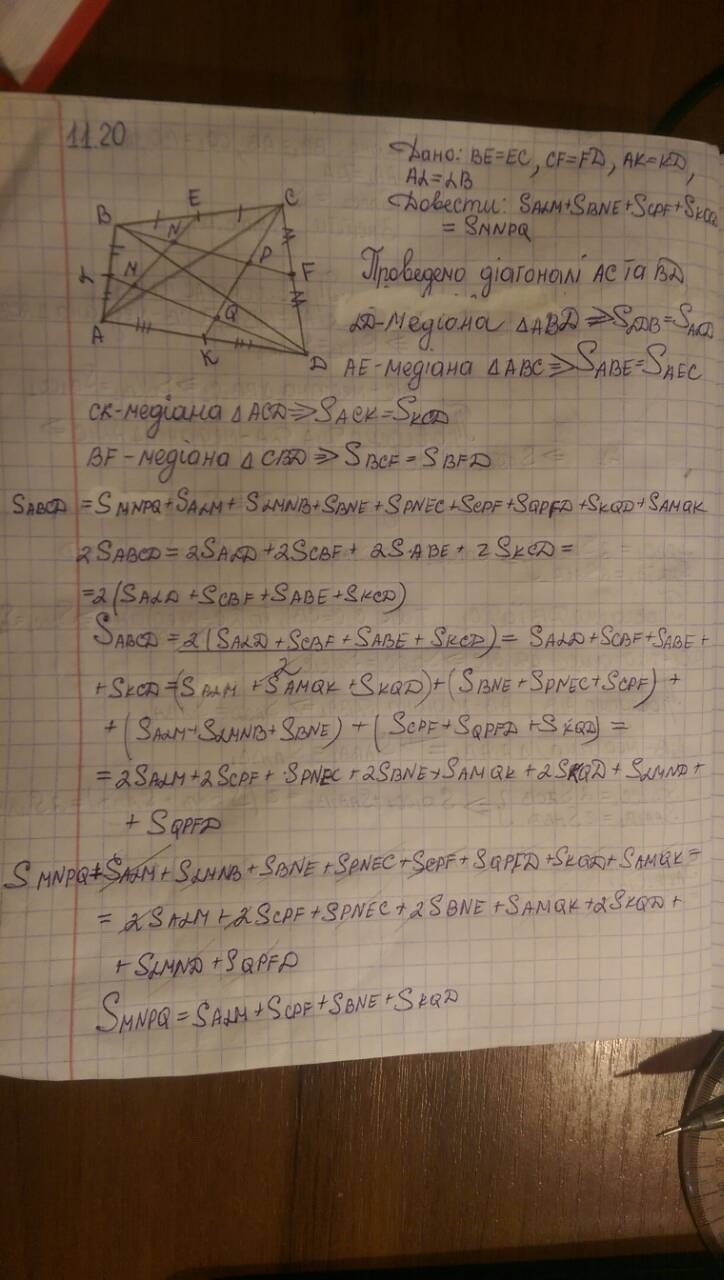 11.20
Дано: BE=EC, CF=FD, AK=KD,
AL=LB
Довести: SALM+SBNE+SCPF+SKQD
= SMNPQ
B
E
C
N
L
M
P
F
A
Q
K
D
Проведемо діагоналі AC та BD
LD-медіана △ABD ⇒ SLDB=SALD
AE-медіана △ABC ⇒ SABE=SAEC
CK-медіана △ACD ⇒ SACK=SKCD
BF-медіана △CBD ⇒ SBCF=SBFD
SABCD = SMNPQ+SALM+SLMNB+SBNE+SPNEC+SCPF+SQPFD+SKQD+SAMQK
2SABCD = 2SALD+2SCBF+2SABE+2SKCD=
=2(SALD+SCBF+SABE+SKCD)
SABCD = 2(SALD+SCBF+SABE+SKCD)= SALD+SCBF+SABE+
2
+SKCD=(SALM+SAMQK+SKQD)+(SBNE+SPNEC+SCPF)+
+(SALM+SLMNB+SBNE)+(SCPF+SQPFD+SKQD)=
=2SALM+2SCPF+SPNEC+2SBNE+SAMQK+2SKQD+SLMND+
+SQPFD
SMNPQ+SALM+SLMNB+SBNE+SPNEC+SCPF+SQPFD+SKQD+SAMQK=
=2SALM+2SCPF+SPNEC+2SBNE+SAMQK+2SKQD+
+SLMND+SQPFD
SMNPQ=SALM+SCPF+SBNE+SKQD